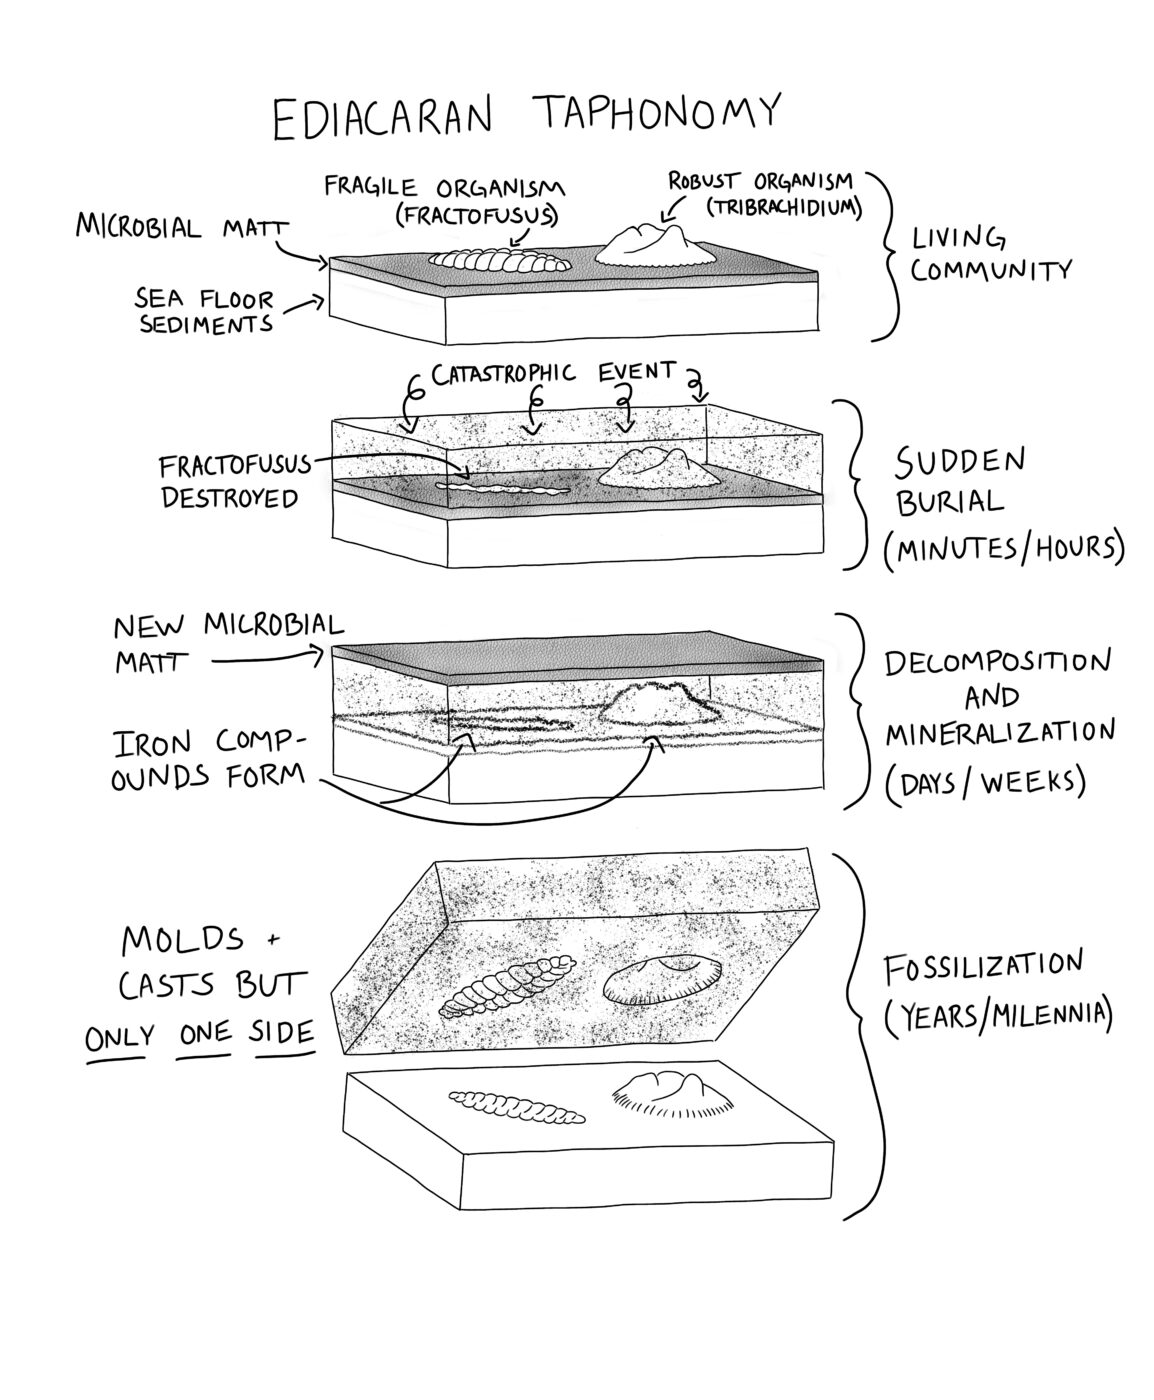 EDIACARAN TAPHONOMY
FRAGILE ORGANISM
(FRACTOFUSUS)
ROBUST ORGANISM
(TRIBRACHIDIUM)
MICROBIAL MATT
SEA FLOOR
SEDIMENTS
LIVING
COMMUNITY
CATASTROPHIC EVENT
FRACTOFUSUS
DESTROYED
SUDDEN
BURIAL
(MINUTES/HOURS)
NEW MICROBIAL
MATT
IRON COMP-
OUNDS FORM
DECOMPOSITION
AND
MINERALIZATION
(DAYS/WEEKS)
MOLDS +
CASTS BUT
ONLY ONE SIDE
FOSSILIZATION
(YEARS/MILENNIA)